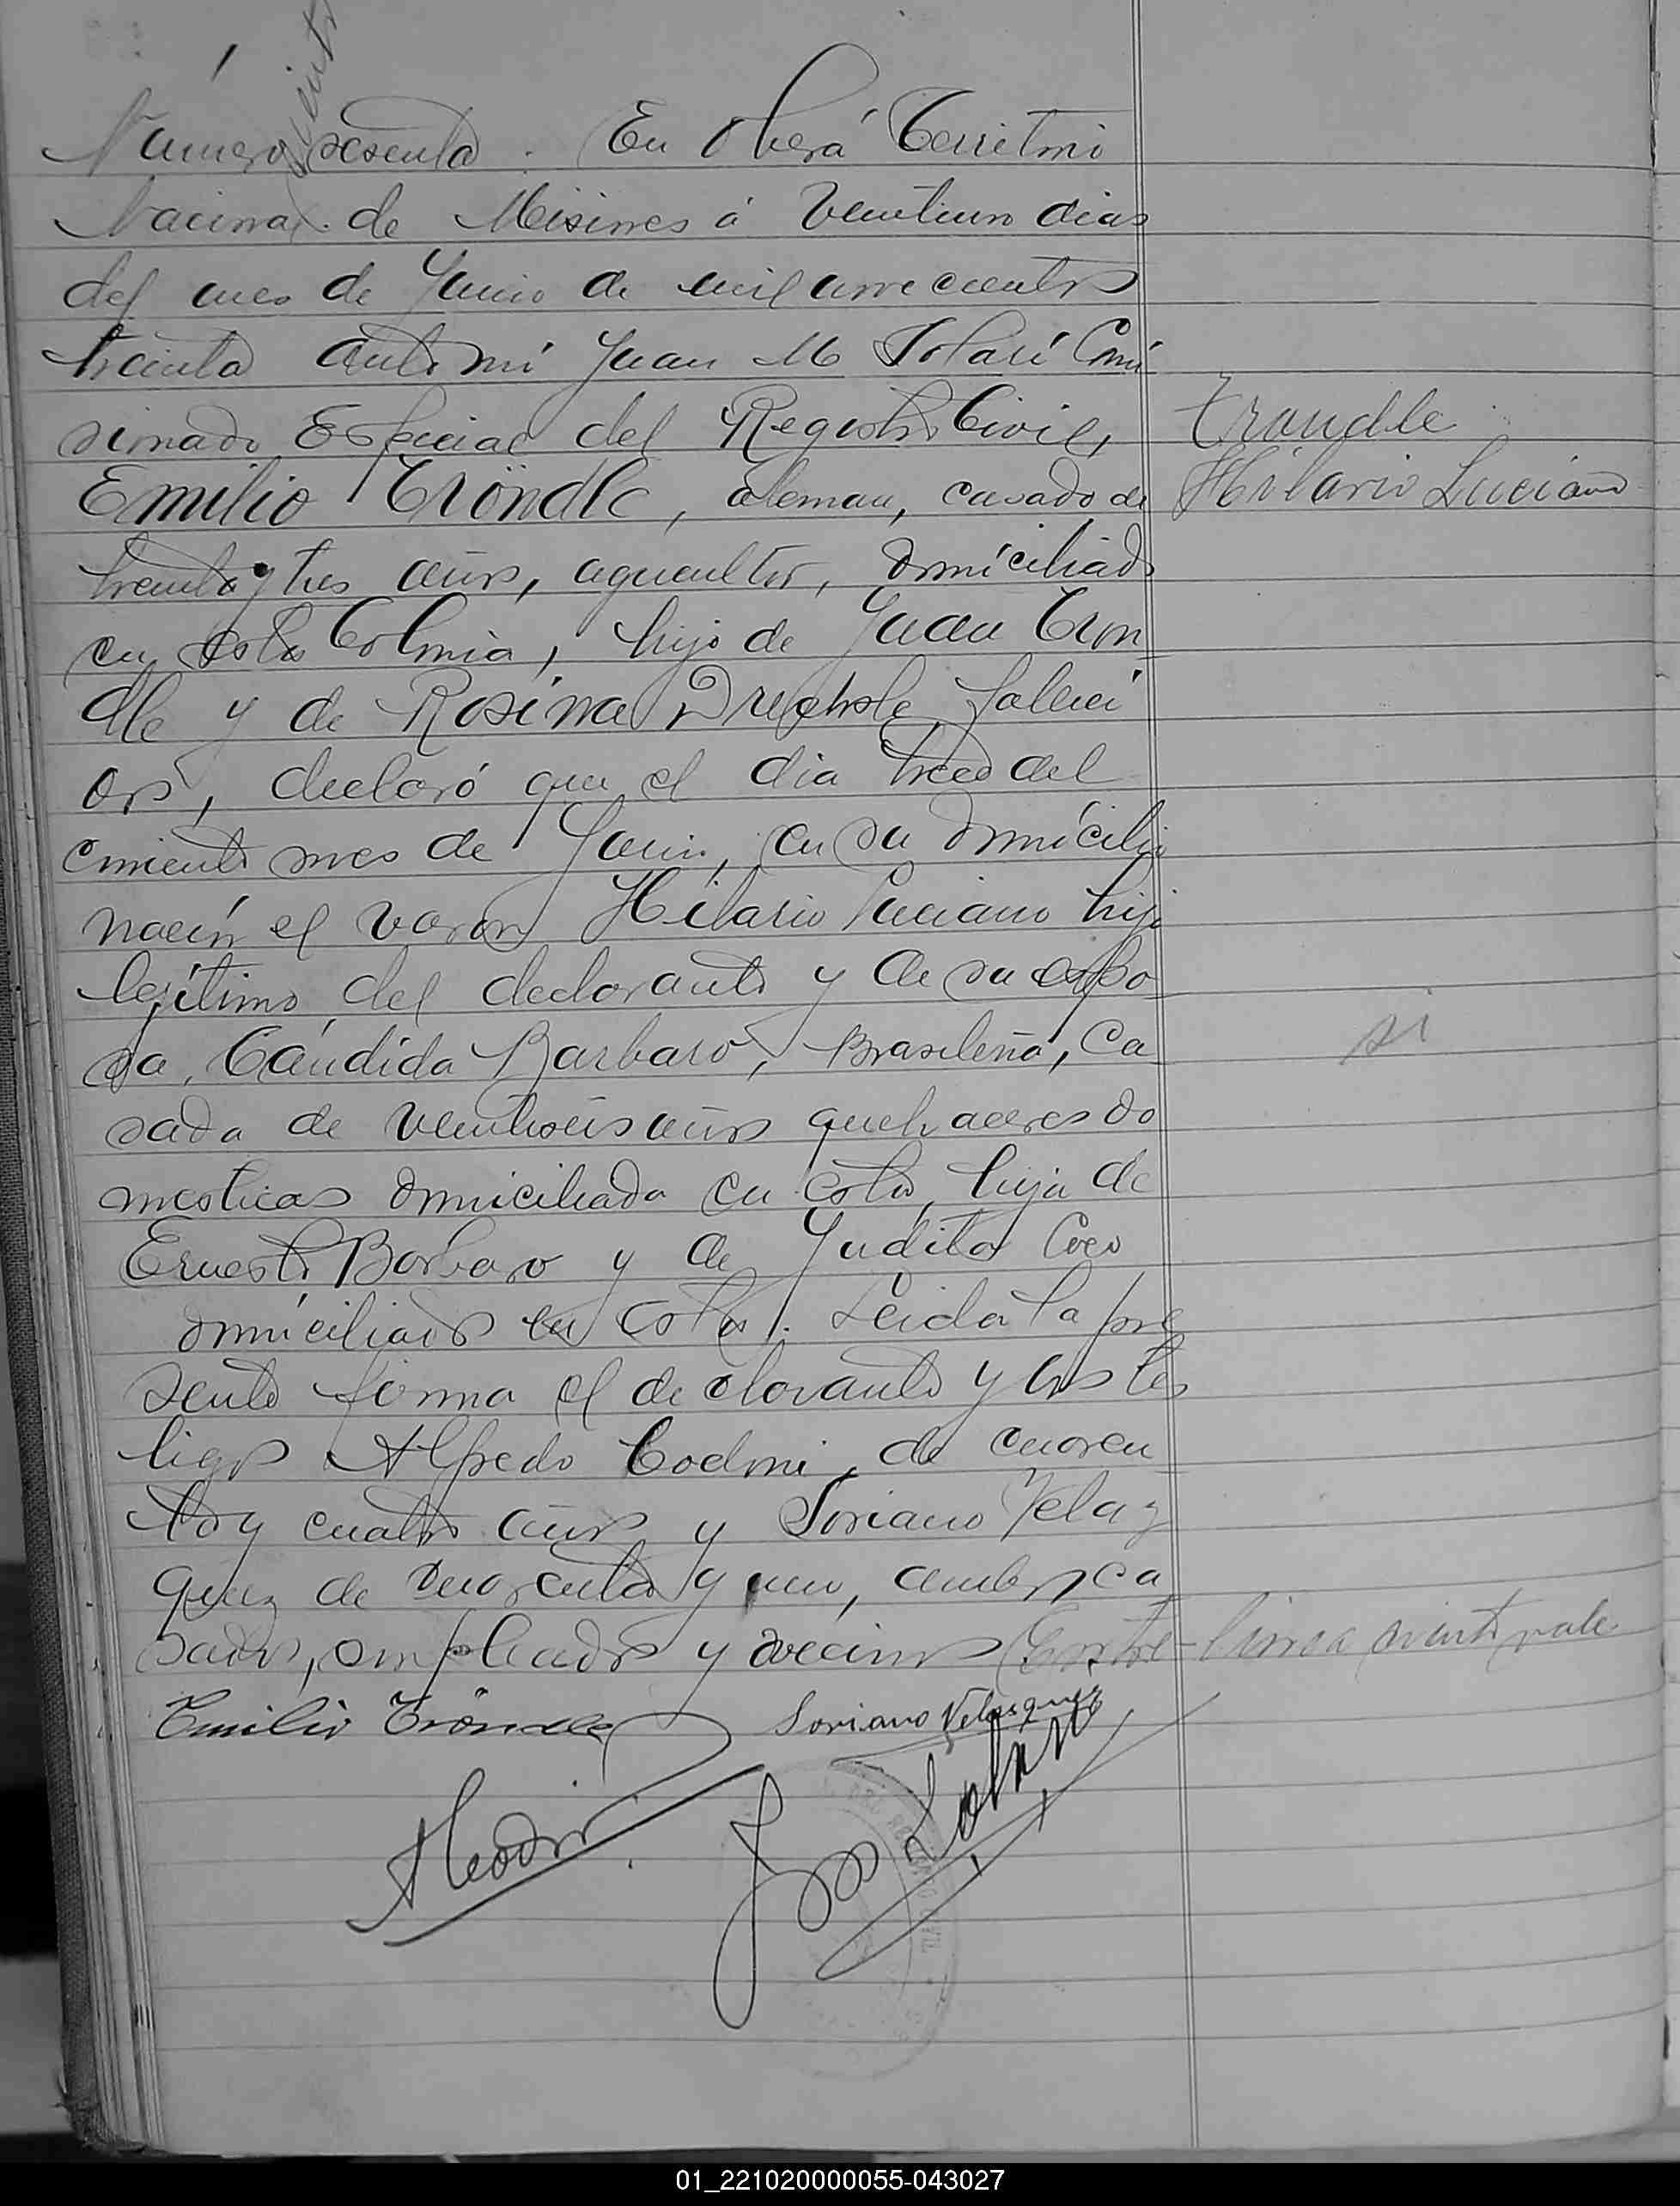 ciento
Número sesenta. En Oberá Territorio
Nacional de Misiones á veintiun dias
del mes de Junio de mil novecientos
treinta ante mi Juan M Solari Comi
sionado Especial del Registro Civil,
Trondle
Emilio Tröndle, aleman, casado de
Hilario Luciano
treinta y tres años, agricultor, domiciliado
en esta Colonia, hijo de Juan Tron
dle y de Rosina Drechsle, falleci
dos, declaró que el dia trece del
corriente mes de Junio, en su domicilio
nació el varon Hilario Luciano hijo
lejítimo del declarante y de su espo
sa, Cándida Barbaro, Brasileña, ca
si
sada de veintiseis años quehaceres do
mesticos domiciliada en esta, hija de
Ernesto Barbaro y de Judita Coco
domiciliados en esta. Leida la pre
sente firma el declarante y los tes
tigos Alfredo Codoni, de cuaren
ta y cuatro años y Soriano Velaz
quez de cuarenta y uno, ambos ca
sados, empleados y vecinos Entre-linea ciento vale
Emilio Tröndle Soriano Velasquez
01_221020000055-043027